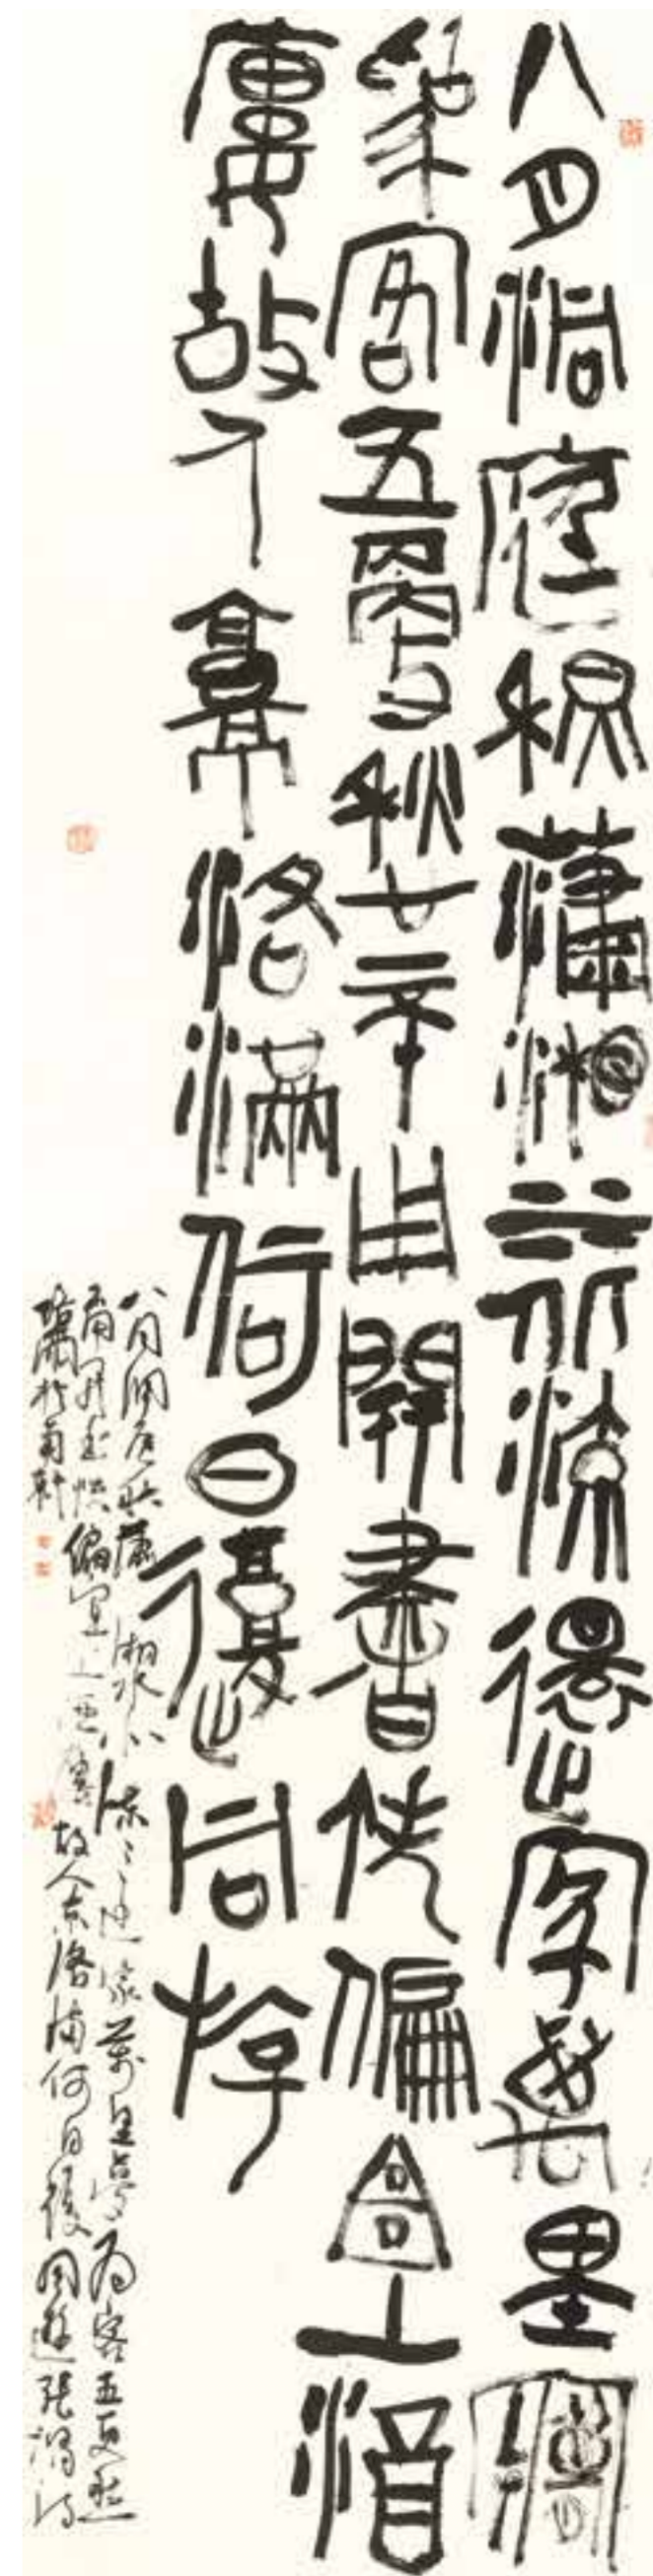 八月洞庭秋瀟湘水北流還家萬里夢
為客五更愁不用開書帙偏宜上酒
樓故人京洛滿何日復同游
八月洞庭秋瀟湘水北流還家萬里夢為客五更愁
不用開書帙偏宜上酒樓故人京洛滿何日復同遊張謂詩
於南軒